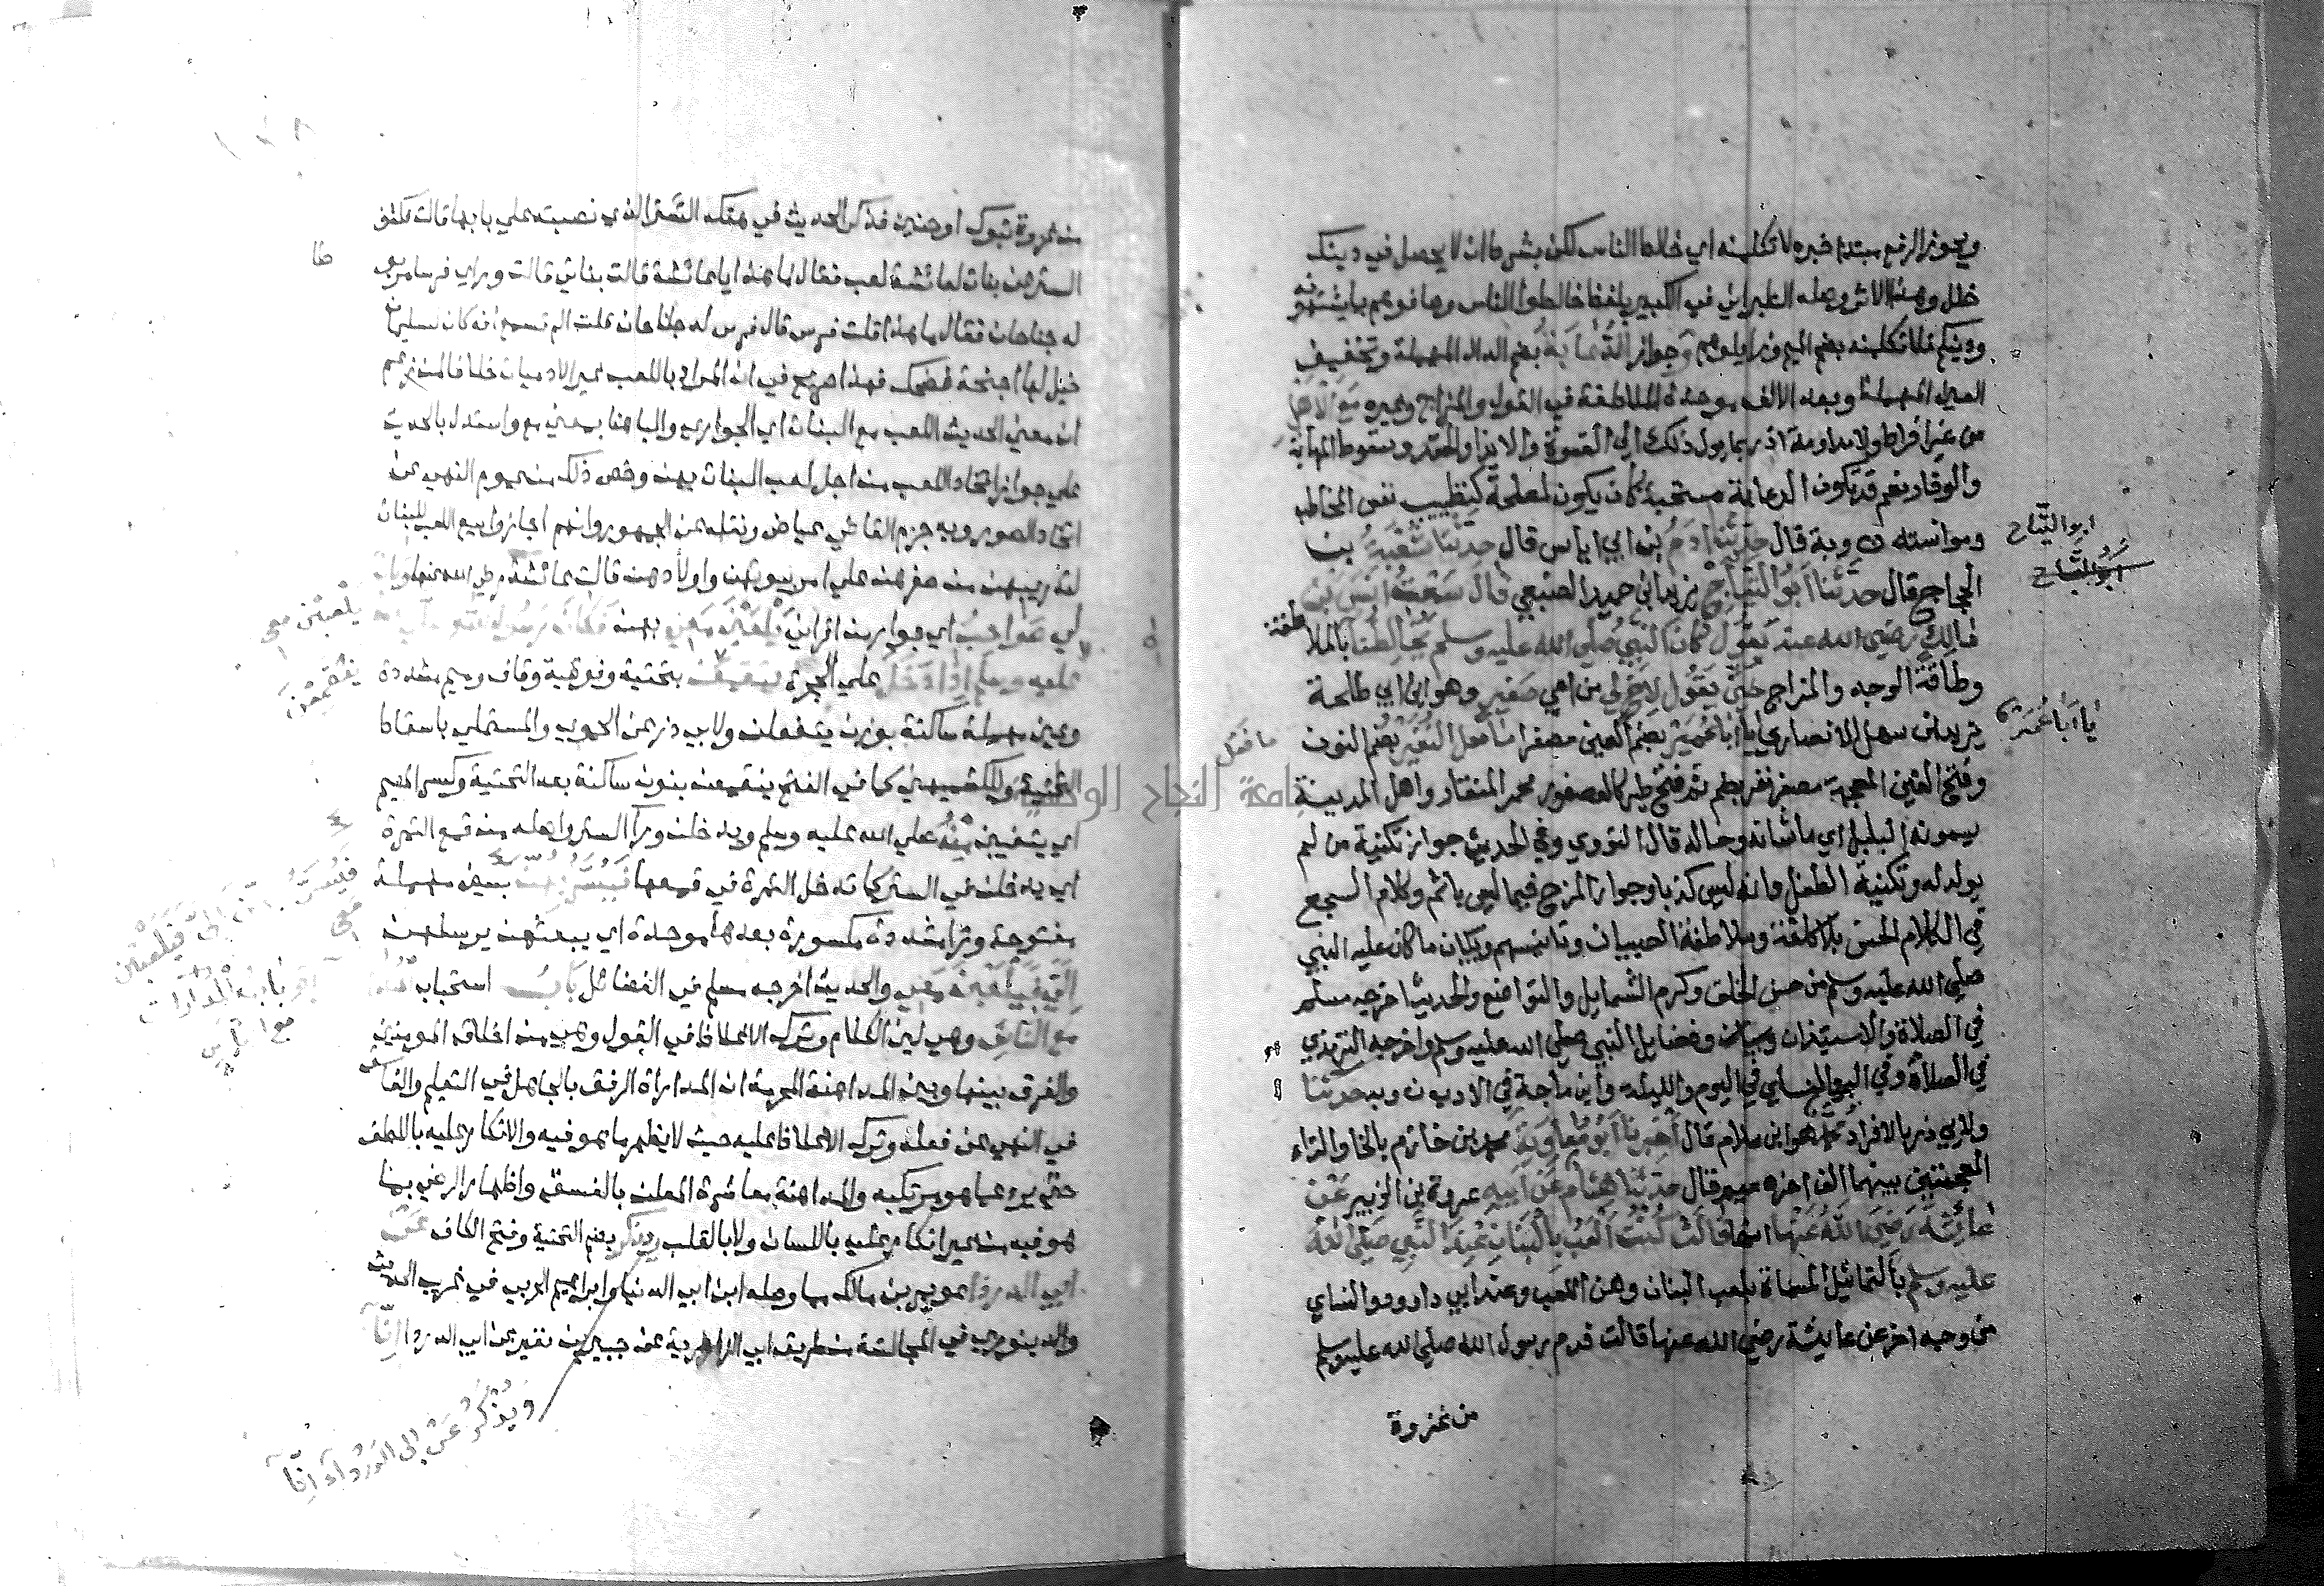 ويجوز الرفع مبتدا خبره لا تكلمنه اي خالط الناس لكن بشرط ان لا يحصل في دينك
خلل وهذا الاثر وصله الطبراني في الكبير بلفظ خالطوا الناس وصافوهم بما يشتهون
ودينكم فلا تكلمنه بضم الميم وجواز الدعابة بضم الدال المهملة وتخفيف
العين المهملة وبعد الالف موحدة الملاطفة في القول والمزاح وغيره مع الاهل
من غير افراط ولا مداومة اذ ربما يول ذلك الي القسوة والايذا والحقد وسقوط المهابة
والوقار نعم قد تكون الدعابة مستحبة كان يكون لمصلحة كتطييب نفس المخاطب
ومواسته وبه قال حدثنا ادم بن ابي اياس قال حدثنا شعبة بن
ابو التياح
ابو التياح
الحجاج قال حدثنا ابو التياح يزيد بن حميد الضبعي قال سمعت انس بن
مالك رضي الله عنه يقول كان النبي صلي الله عليه وسلم يخالطنا بالملاطفة
وطلاقة الوجه والمزاح حتى يقول لاخ لي من امي صغير وهو ابن ابي طلحة
يا ابا عمير
زيد بن سهل الانصاري يا ابا عمير بضم العين مصغرا ما فعل النغير بضم النون
ما فعل
وفتح الغين المعجمة مصغر نغر بضم ثم فتح طير كالعصفور محمر المنقار واهل المدينة
يسمونه البلبل اي ما شانه وحاله قال النووي وفي الحديث جواز تكنية من لم
يولد له وتكنية الطفل وانه ليس كذبا وجواز المزح فيما ليس باثم وكلام السجع
في الكلام الحسن بلا كلفة وملاطفة الصبيان وتانيسهم وبيان ما كان عليه النبي
صلي الله عليه وسلم من حسن الخلق وكرم الشمايل والتواضع والحديث اخرجه مسلم
في الصلاة والاستيذان وفضايل النبي صلي الله عليه وسلم واخرجه الترمذي
في الصلاة وفي البر والنساي في اليوم والليلة وابن ماجة في الادب وبه حدثنا
ولابي ذر بالافراد محمد هو ابن سلام قال اخبرنا ابو معاوية محمد بن خازم بالخا والزاء
المعجمتين بينهما الف اخره ميم قال حدثنا هشام عن ابيه عروة بن الزبير عن
عائشة رضي الله عنها انها قالت كنت العب بالبنات عند النبي صلي الله
عليه وسلم بالتماثيل المسماة بلعب البنات وهن اللعب وعند ابي داود والنساي
من وجه اخر عن عايشة رضي الله عنها قالت قدم رسول الله صلي الله عليه وسلم
من غزوة
من غزوة تبوك او حنين فذكر الحديث في هتكه الستر الذي نصبته علي بابها قالت فكشف
الستر عن بنات لعائشة لعب فقال ما هذا يا عائشة قالت بناتي قالت وراي فرسا مربوطا
له جناحان فقال ما هذا قلت فرس قال فرس له جناحان قلت الم تسمع انه كان لسليمان
خيل لها اجنحة فضحك فهذا صريح في ان المراد باللعب غير الادميات خلافا لمن زعم
ان معني الحديث اللعب مع البنات اي الجواري والبا هنا بمعني مع واستدل بالحديث
علي جواز اتخاذ اللعب من اجل لعب البنات بهن وخص ذلك من عموم النهي عن
اتخاذ الصور وبه جزم القاضي عياض ونقله عن الجمهور وانهم اجازوا بيع اللعب للبنات
لتدريبهن من صغرهن علي امر بيوتهن واولادهن قالت عائشة رضي الله عنها وكان
لي صواحب اي جوار من اقراني يلعبن معي بهن فكان رسول الله صلي الله
يلعبن معي
عليه وسلم اذا دخل علي الحجرة يتقمعن بتحتية وفوقية وقاف وميم مشددة
يتقمعن
وعين مهملة ساكنة بوزن يتفعلن ولابي ذر عن الحموي والمستملي باسقاط
التحتية وللكشميهني كما في الفتح ينقمعن بنون ساكنة بعد التحتية وكسر الميم
اي يتغيبن منه صلي الله عليه وسلم ويدخلن ورا الستر واصله من قمع التمرة
اي يدخلن في الستر كما تدخل التمرة في قمعها فيسربهن بسين مهملة
فيسربهن الي فيلعبن معي
مفتوحة ورا مشددة مكسورة بعدها موحدة اي يبعثهن يرسلهن
الي فيلعبن معي والحديث اخرجه مسلم في الفضائل باب استحباب
باب المداراة مع الناس
مع الناس وهي لين الكلام وترك الاغلاظ في القول وهي من اخلاق المومنين
والفرق بينها وبين المداهنة المحرمة ان المداراة الرفق بالجاهل في التعليم والفاسق
في النهي عن فعله وترك الاغلاظ عليه حيث لا يظهر ما هو فيه والانكار عليه باللطف
حتي يرد عما هو مرتكبه والمداهنة معاشرة المعلن بالفسق واظهار الرضي بما
هو فيه من غير انكار عليه باللسان ولا بالقلب ويذكر بضم التحتية وفتح الكاف عن
ابي الدرداء عويمر بن مالك مما وصله ابن ابي الدنيا وابراهيم الحربي في غريب الحديث
والدينوري في المجالسة من طريق ابي الزاهرية عن جبير بن نفير عن ابي الدردا انا
ويذكر عن ابي الدرداء انا
جامعة النجاح الوطنية